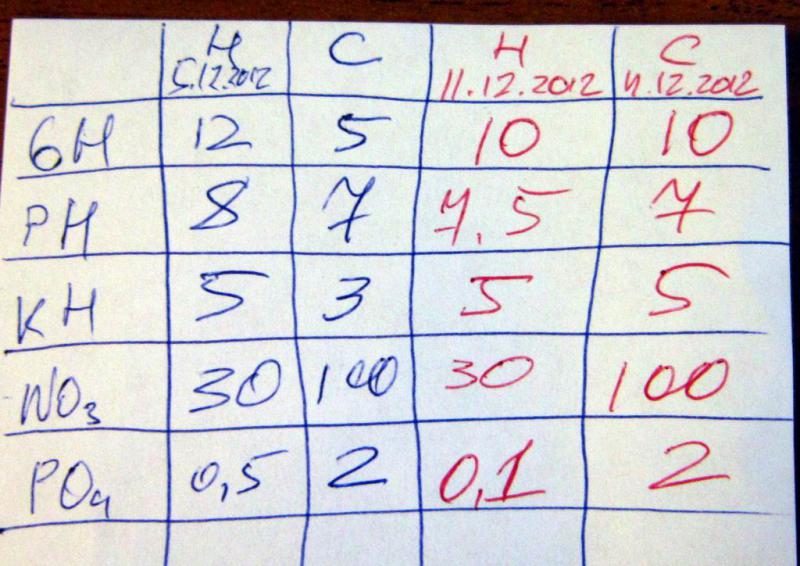 Н С Н С
5.12.2012 11.12.2012 11.12.2012
GH 12 5 10 10
PH 8 7 7,5 7
KH 5 3 5 5
NO3 30 100 30 100
PO4 0,5 2 0,1 2